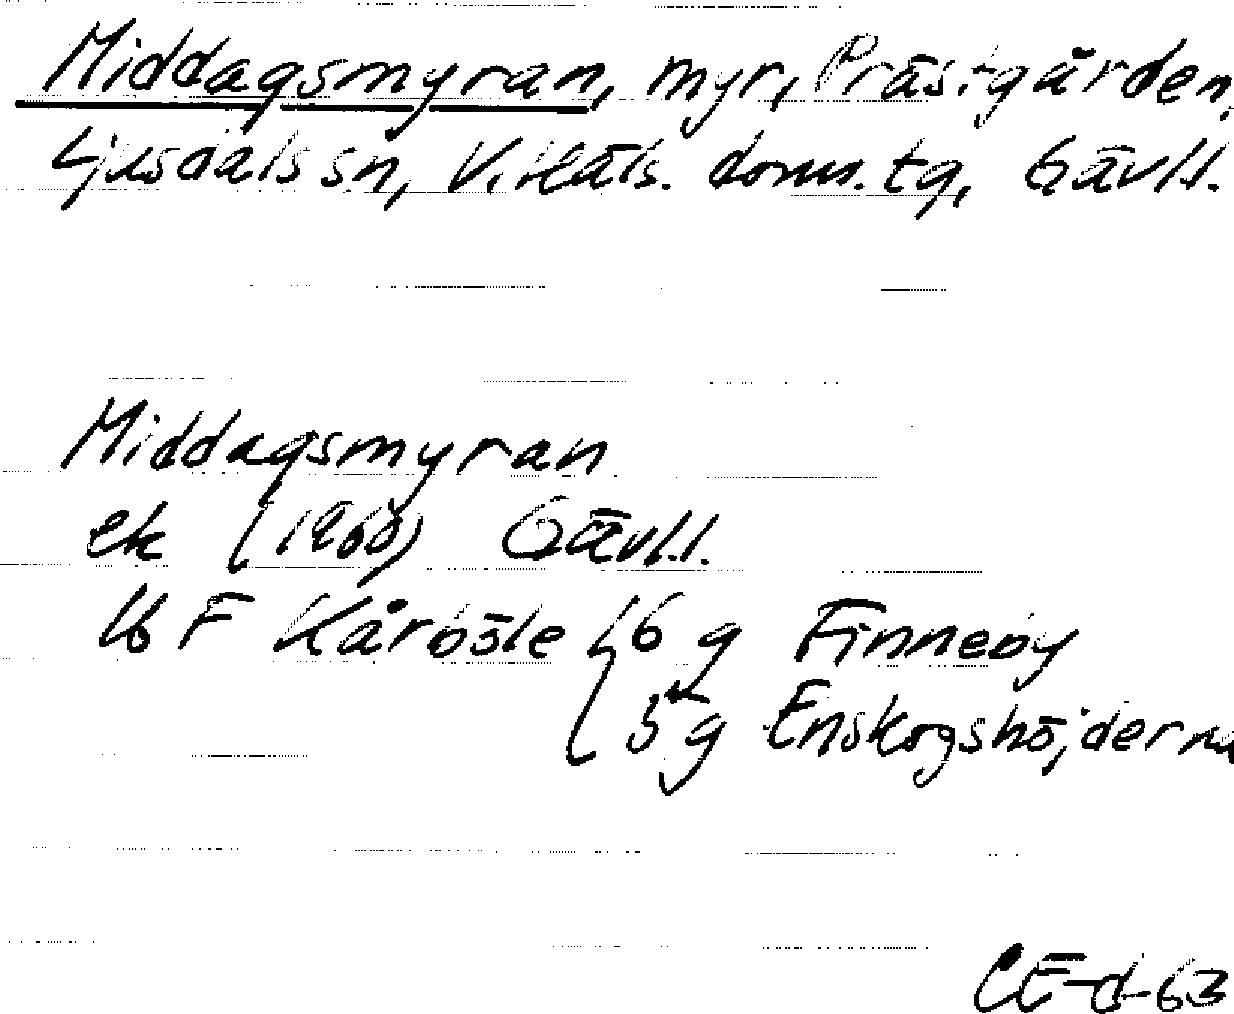 Middagsmyran, myr, Prästgården,
Ljusdals sn, V. Häls. doms. tg, Gävl.l.
Middagsmyran
ek (1960) Gävl.l.
16 F Kårböle 6 g Finneby
5 g Enskogshöjderna
CE-d-63